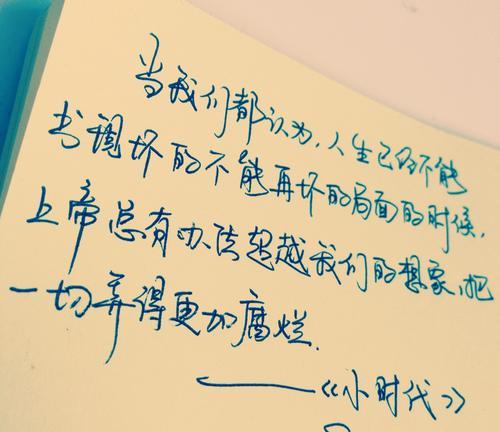 当我们都认为,人生已经不能
出现坏的不能再坏的局面的时候,
上帝总有办法超越我们的想象,把
一切弄得更加腐烂.
——《小时代》